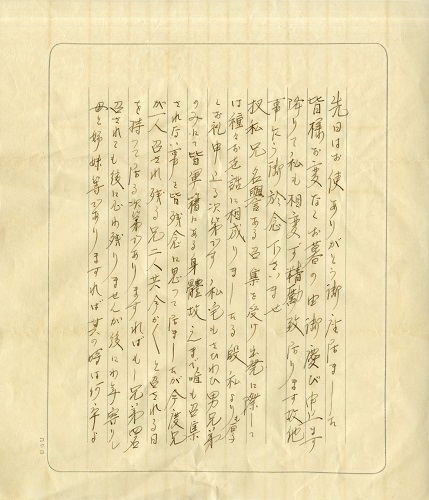 先日はお便ありがとう御座居ました
皆様お変なくお暮の由御慶び申上ます
降りて私も相変ず精励致居ります故他
事乍ら御放念下さいませ
扨私兄名誉ある召集を受け出発に際して
は種々お世話に相成りましたる段私よりも厚
くお礼申上る次第です 私宅もさひわひ男兄弟
のみにて皆軍籍にある身體故 今まで唯も召集
されない事と皆残念に思って居ましたが今度兄
が一人召され残る兄二人共今か〱と召される日
を待って居る次第でありますればもし兄弟四名
召されても後に心わ残りませんが後にわ年寄りし
母と姉妹等でありますれば其の時は何卒よ